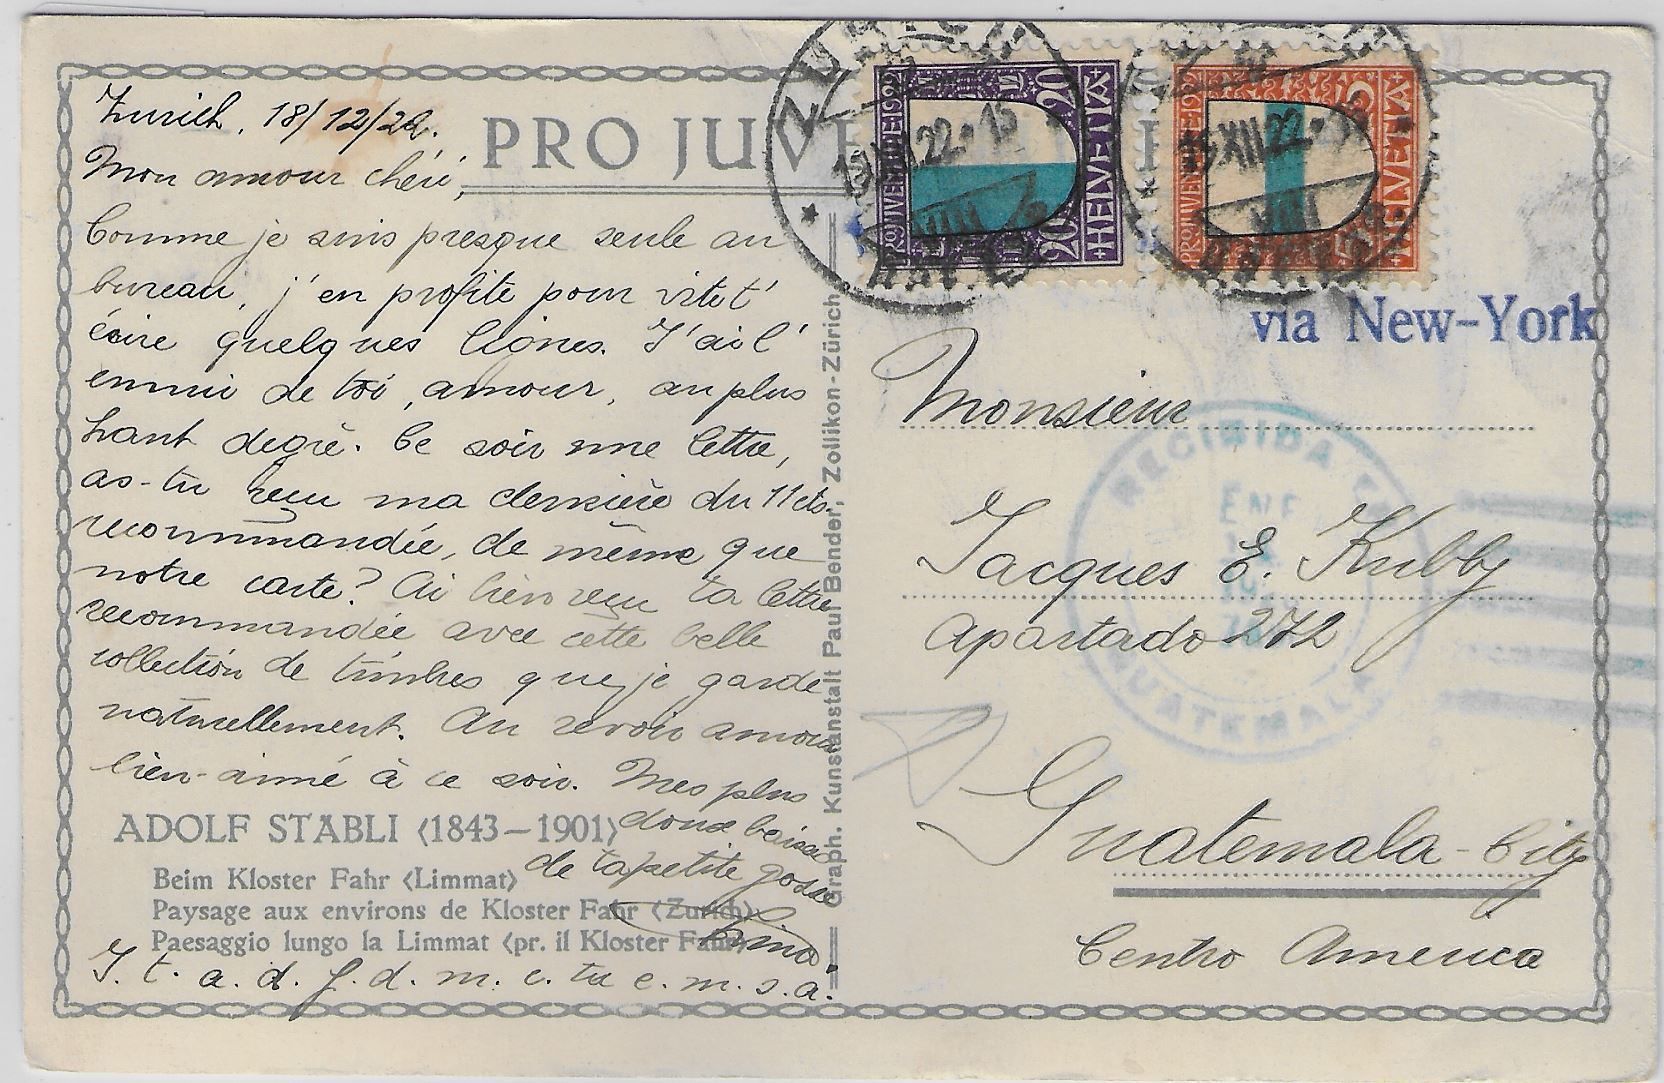 Zurich, 18/12/22.
PRO JUVE
Mon amour chéri,
Comme je suis presque seule au
bureau, j'en profite pour vite t'
écrire quelques lignes. J'ai l'
ennui de toi, amour, au plus
haut degré. Ce soir une lettre,
as-tu reçu ma dernière du 11 cts.
recommandée, de même que
notre carte? Ai bien reçu ta lettre
recommandée avec cette belle
collection de timbres que je garde
naturellement. Au revoir amour
bien-aimé à ce soir. Mes plus
doux baisers
de ta petite gosse
ADOLF STÄBLI <1843-1901>
Beim Kloster Fahr <Limmat>
Paysage aux environs de Kloster Fahr <Zurich>
Paesaggio lungo la Limmat <pr. il Kloster Fahr>
J. t. a. d. f. d. m. c. tu e. m. s. a.
Graph. Kunstanstalt Paul Bender, Zollikon-Zürich
ZÜRICH
XII.22.15
VIII
PRO JUVENTUTE 1922
20 20
HELVETIA
XII.22
VIII
PRO JUVENTUTE 1922
5 5
HELVETIA
via New-York
Monsieur
Jacques E. Kubby
Apartado 272
Guatemala-City
Centro America
RECIBIDA
ENE
GUATEMALA